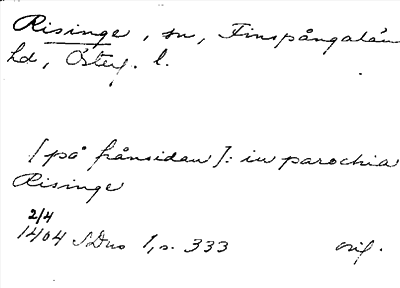 Risinge, sn, Finspångalän
hd, Österg. l.
[på frånsidan]: in parochia
Risinge
2/4
1404 SDns 1, s. 333 orig.